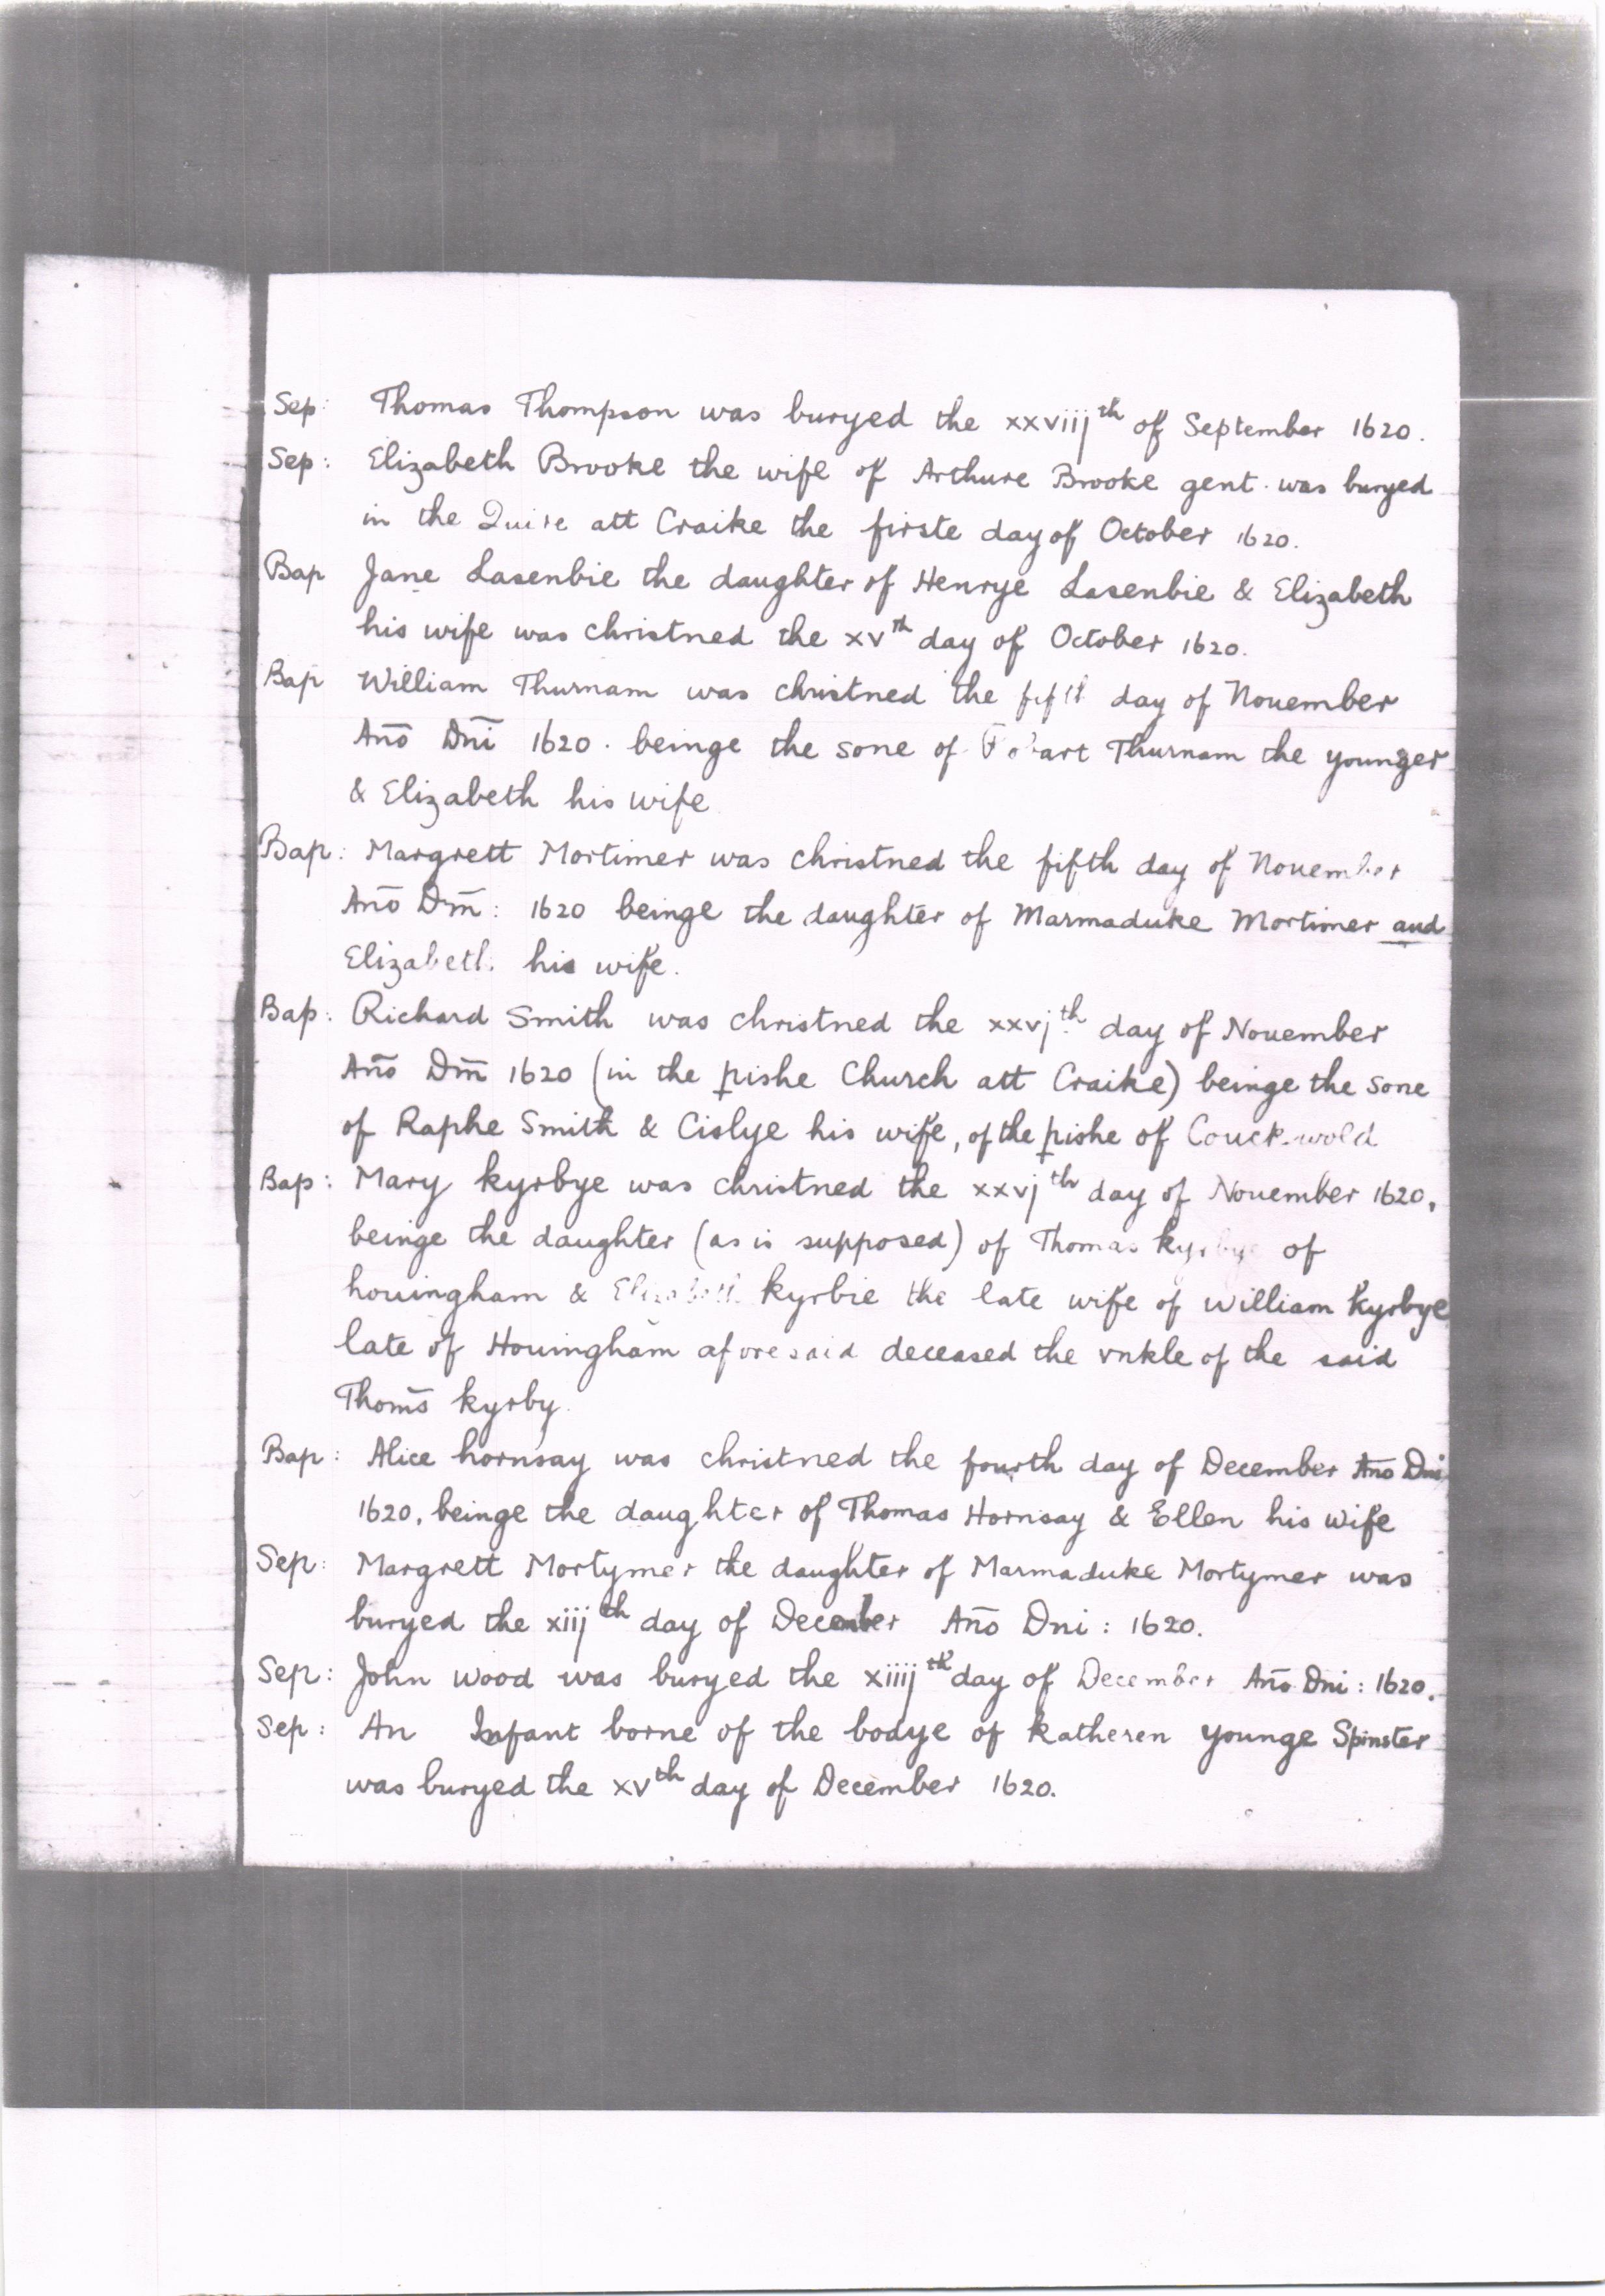 Sep: Thomas Thompson was buryed the xxviijth of September 1620.
Sep: Elizabeth Brooke the wife of Arthure Brooke gent. was buryed
in the Quire att Craike the firste day of October 1620.
Bap Jane Lasenbie the daughter of Henrye Lasenbie & Elizabeth
his wife was christned the xvth day of October 1620.
Bap William Thurnam was christned the fifth day of Nouember
Anō Dnī 1620. beinge the sone of Thurnam the younger
& Elizabeth his wife
Bap: Margrett Mortimer was christned the fifth day of Nouember
Anō Dm̄: 1620 beinge the daughter of Marmaduke Mortimer and
Elizabeth his wife.
Bap: Richard Smith was christned the xxvjth day of Nouember
Anō Dm̄ 1620 (in the pishe Church att Craike) beinge the sone
of Raphe Smith & Cislye his wife, of the pishe of Couckwold
Bap: Mary kyrbye was christned the xxvjth day of Nouember 1620,
beinge the daughter (as is supposed) of Thomas kyrbye of
houingham & Elizabeth kyrbie the late wife of william kyrbye
late of Houingham aforesaid deceased the vnkle of the said
Thom̄s kyrby.
Bap: Alice hornsay was christned the fourth day of December Ano Dni
1620, beinge the daughter of Thomas Hornsay & Ellen his wife
Sep: Margrett Mortymer the daughter of Marmaduke Mortymer was
buryed the xiijth day of December Anō Dni: 1620.
Sep: John wood was buryed the xiiijth day of December Anō Dni: 1620.
Sep: An Infant borne of the bodye of katheren younge Spinster
was buryed the xvth day of December 1620.